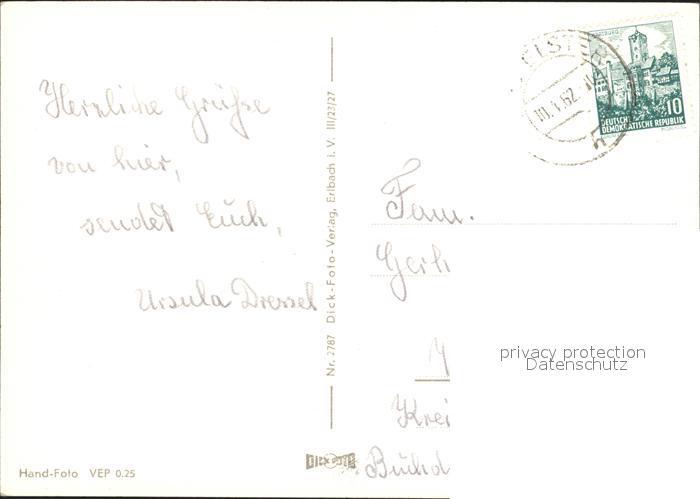 Herzliche Grüße
von hier,
sendet Euch,
Ursula Dressel
Nr. 2787 Dick-Foto-Verlag, Erlbach i. V. III/23/27
Hand-Foto VEP 0.25
DICK FOTO
10
DEUTSCHE
DEMOKRATISCHE REPUBLIK
Fam.
Gerh
Krei
privacy protection
Datenschutz